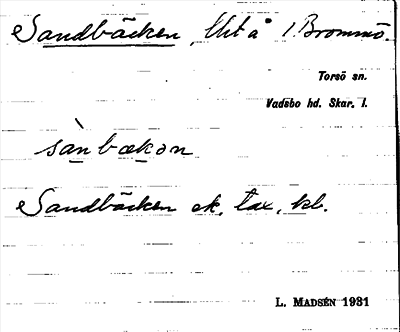 Sandbäcken, litå / Brommö.
Torsö sn.
Vadsbo hd. Skar. l.
sànbækən
Sandbäcken ek, tax, kb.
L. MADSÉN 1931